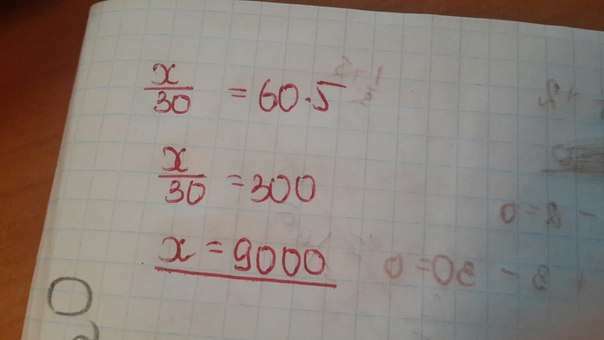 x/30 = 60·5
x/30 = 300
x = 9000